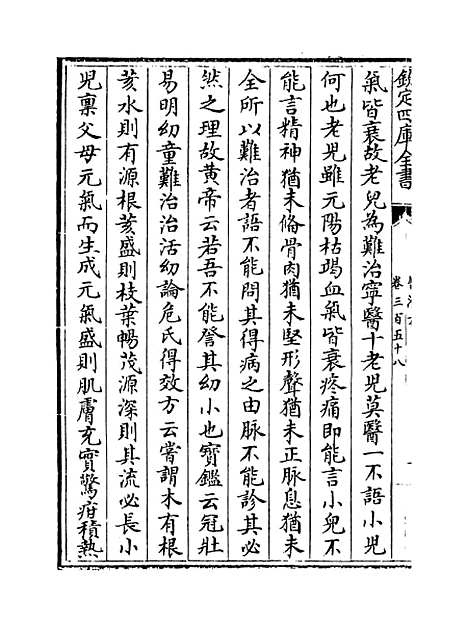 欽定四庫全書
卷三百五十八
氣皆衰故老兒為難治寧醫十老兒莫醫一不語小兒
何也老兒雖元陽枯竭血氣皆衰疼痛即能言小兒不
能言精神猶未備骨肉猶未堅形聲猶未正脈息猶未
全所以難治者語不能問其得病之由脈不能診其必
然之理故黃帝云若吾不能詧其幼小也寶鑑云冠壯
易明幼童難治治活幼論危氏得效方云嘗謂木有根
荄水則有源根荄盛則枝葉暢茂源深則其流必長小
兒稟父母元氣而生成元氣盛則肌膚充實驚疳積熱